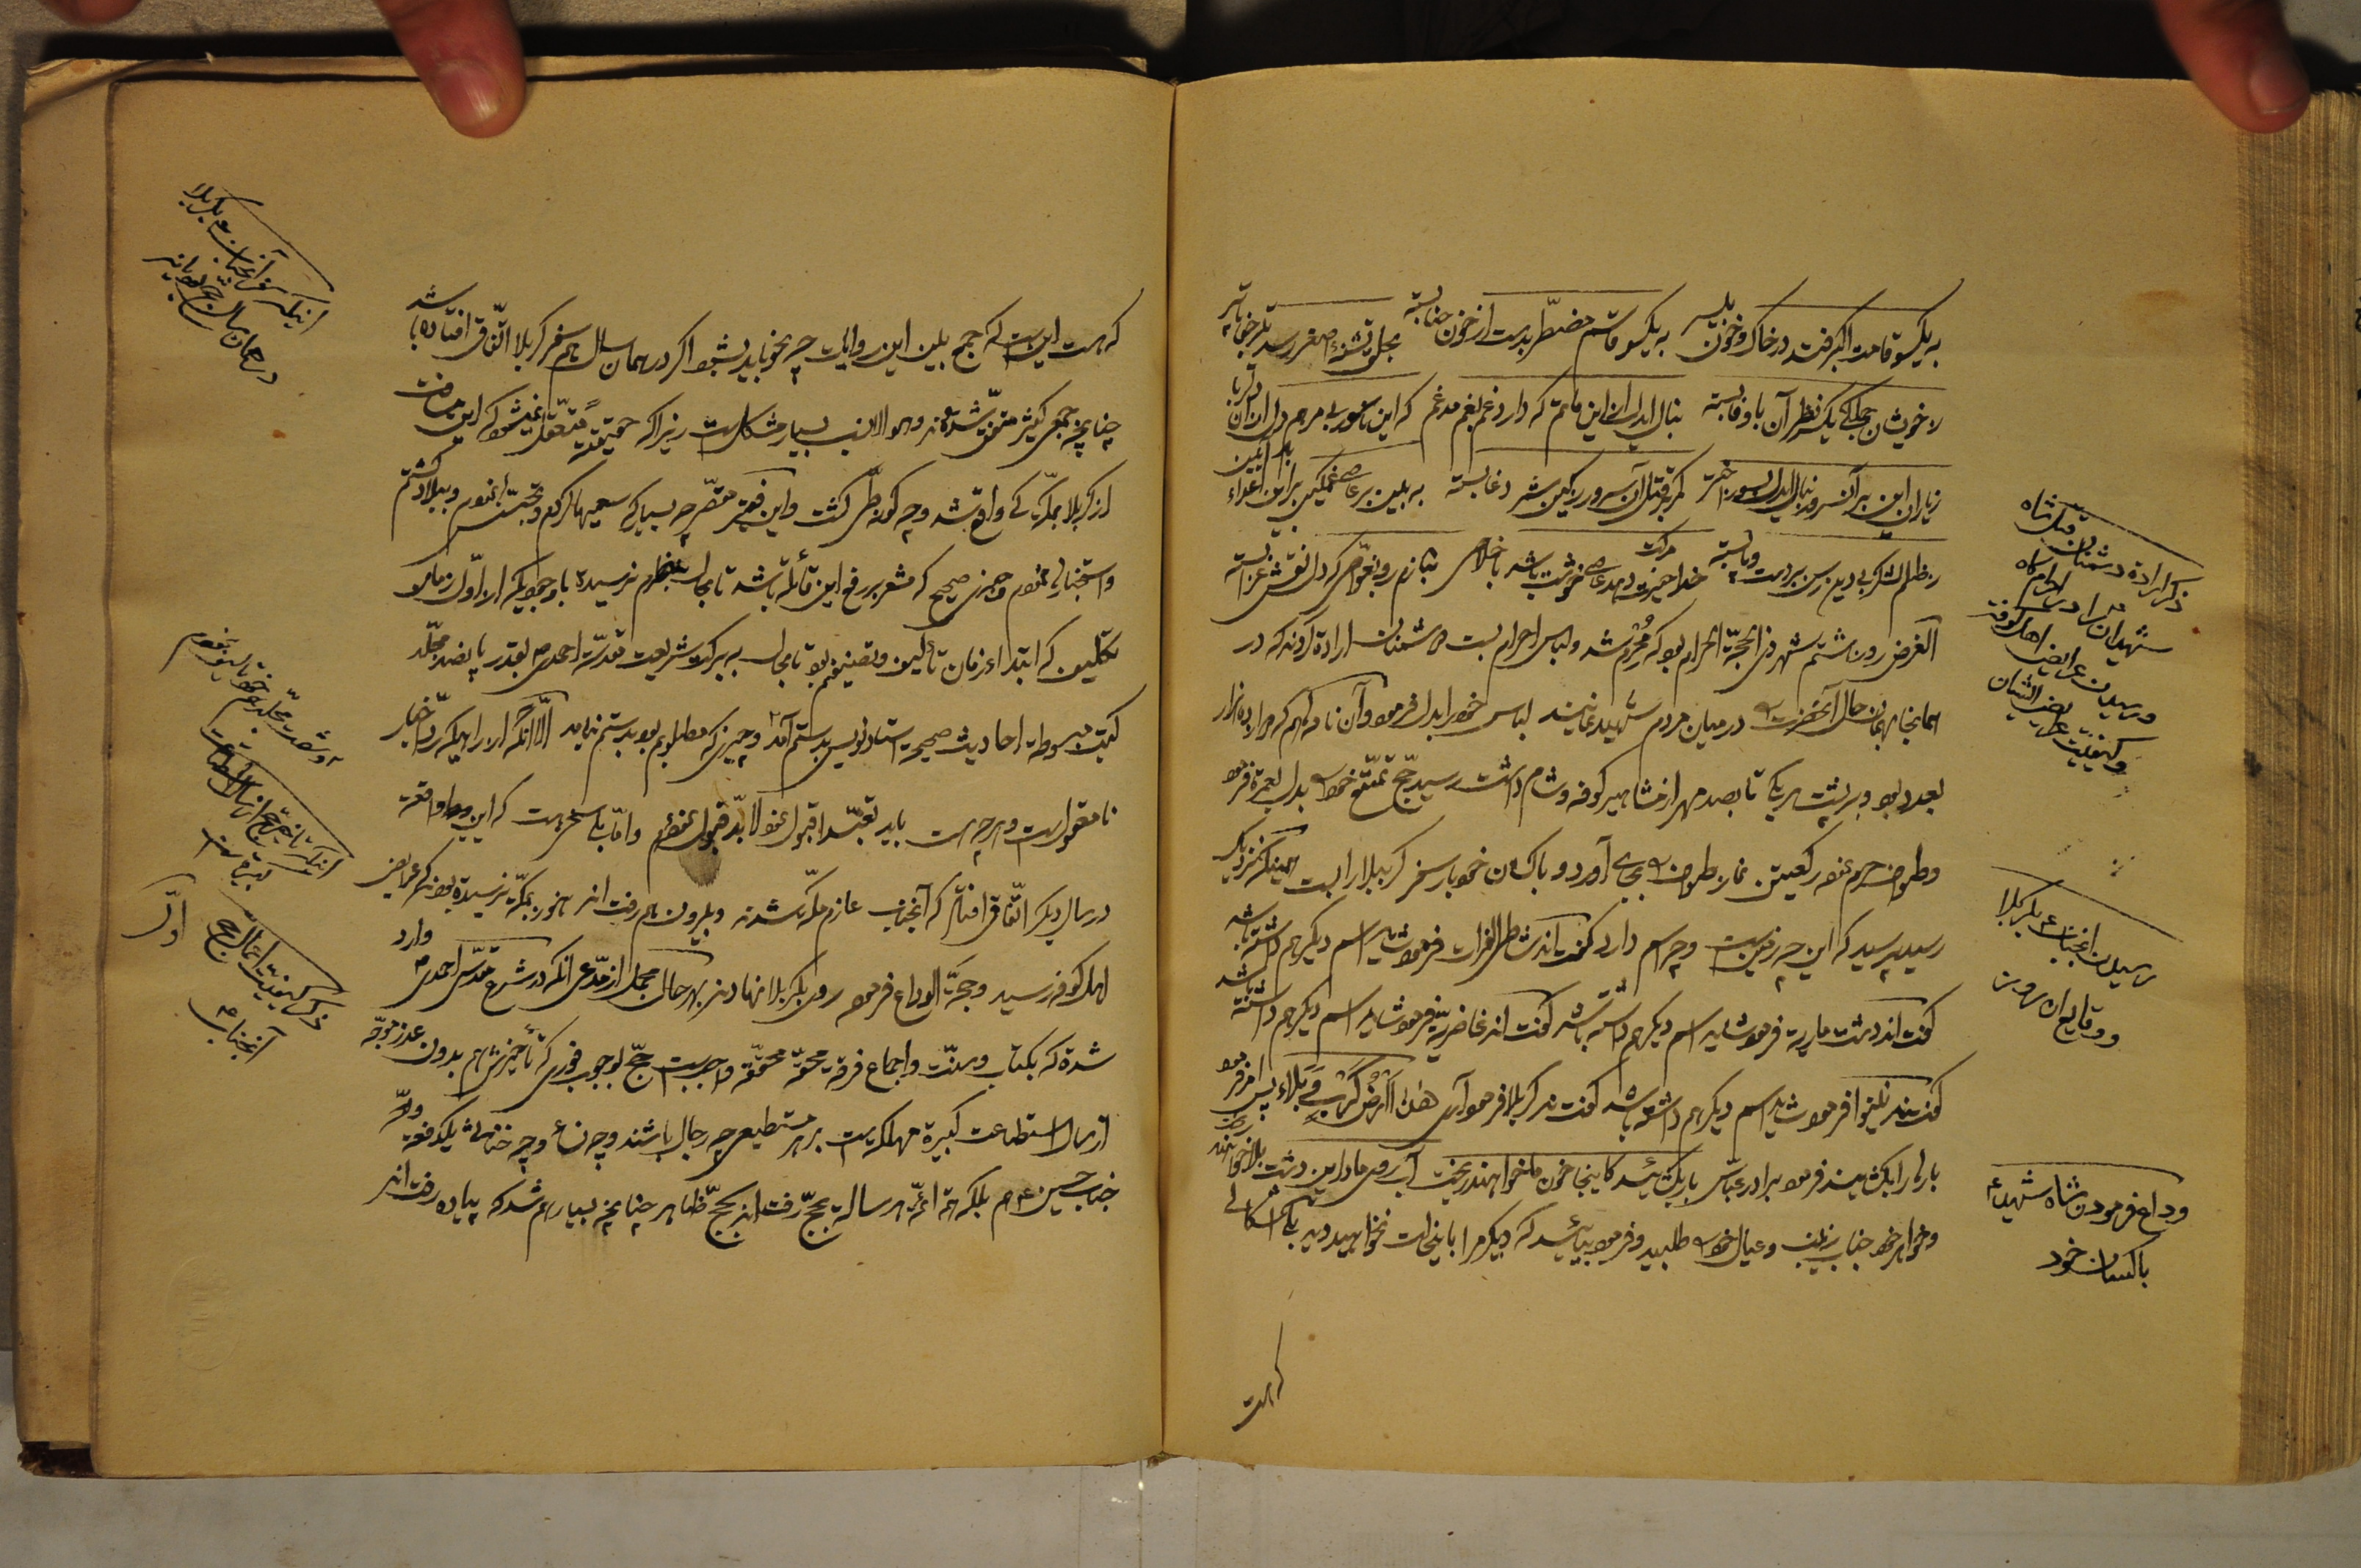 به یکسو قامت اکبر فتد در خاک و خون یکسر به یکسو قاسم مضطر بدست از خون حنا بسته بحلق تشنهٔ اصغر رسد تیر جفا
ز خویشان جملگی یکسر نظر آن باوفا بسته بنال ایدل از این ماتم که دارد غم بغم مدغم که این ناسور بی مرهم دل
کمر بر قتل آن سرور ز کین شمر دغا بسته به بین بر عاصی غمگین
ز ظلم لشکر بی دین رسن بر دست و پا بسته خدا خیرت دهد عاصی خوشت باشد باخلاص که دل نقش عزا بسته
الغرض روز هشتم شهر ذی الحجة الحرام بود که محرم شده و لباس احرام بست دشمنان اراده کردند که در
همانجا بهمان حال آنحضرت را در میان مردم شهید نمایند لباس خود را بدل فرمود و آن نامه هم که دوازده هزار
بعدد بود و بر پشت هر یک تا بصد مهر از مشاهیر کوفه و شام داشت رسید حج تمتع خود را بدل بعمره فرمود
و طواف حرم نمود رکعتین نماز طواف را بجای آورد و با کسان خود بار سفر کربلا را بست همینکه بنزدیک
رسید پرسید که این چه زمین است و چه اسم دارد گفتند شط الفرات فرمود شاید اسم دیگر هم داشته باشد
گفتند دشت ماریه فرمود شاید اسم دیگر هم داشته باشد گفتند غاضریه فرمود شاید اسم دیگر هم داشته باشد
گفتند نینوا فرمود شاید اسم دیگر هم داشته باشد گفتند کربلا فرمود آری هذا ارض کرب و بلاء پس فرمود
بارها را بکشائید فرمود برادر عباس بار بکشائید کاینجا خون ما خواهند ریخت آب روی ما در این دشت بلا خواهند ریخت
و خواهر خود جناب زینب و عیال خود را طلبید و فرمود بیائید که دیگر مرا باینحالت نخواهید دید لکن اشکالی
که هست
ذکر اراده دشمنان قتل شاه
شهیدان را در احرامگاه
و رسیدن عرایض اهل کوفه
و کیفیت عرایض ایشان
رسیدن آنجناب ع بکربلا
و وقایع آن زمین
وداع فرمودن شاه شهدا ع
با کسان خود
که هست این است که جمع بین این روایات چه نحو باید بشود اگر در همان سال هم سفر کربلا اتفاق افتاده باشد
چنانچه جمعی کثیر متفق شده‌اند و هو الانسب بسیار مشکل است زیرا که حقیقةً متعقل نمیشود که این مسافت
از کربلا بمکه کی واقع شد و چه گونه طی گشت و این فقیر مقصر چه بسیار که سعیها کردم و تجسس نمودم و بیلاد گشتم
و استخبار نمودم و خبری صحیح که مشعر بر رفع این قائله باشد تا بحال بنظرم نرسیده با وجودیکه از اول زمان
تکلیف که ابتداء زمان تألیف و تصنیفم بود تا بحال به برکت شریعت مقدسه احمدی ص بقدر پانصد مجلد
کتب مبسوطه احادیث صحیحه استاد نویس بدستم آمد و چیزی که مطلوبم بود بدستم نیامد الا آنکه از راهیکه رد اخبار
نامعقول است و هر چه هست باید تعبداً قبول نمود لابد قبول نمودم و اما پاسخ است که این دو واقعه
در سال دیگر اتفاق افتاد که آنجناب عازم مکه شدند و بیرون هم رفته‌اند هنوز بمکه نرسیده بودند که عرایض
اهل کوفه رسید و حجة الوداع فرمود روی بکربلا نهادند بهر حال مجمل از مدعی آنکه در شرع مقدس احمدی ص وارد
شده که بکتاب و سنت و اجماع فرقه محقه محققه واجب است حج بوجوب فوری که تأخیرش هم بدون عذر موجه
از سال استطاعت کبیره مهلکه است بر هر مستطیعی چه رجال باشند و چه نساء و چه خناثی یکدفعه
جناب حسین ع هم بلکه همه ائمه هر ساله بحج رفته‌اند بحج ظاهر چنانچه بسیار هم شد که پیاده رفته‌اند
اینکه سفر آنجناب ع بکربلا
در همان سال حج بود یا نه
و شصت مجلد
اینکه تأخیر حج از سال استطاعت
کبیره است
اول
ذکر کیفیت اعمال حج
آنجناب ع